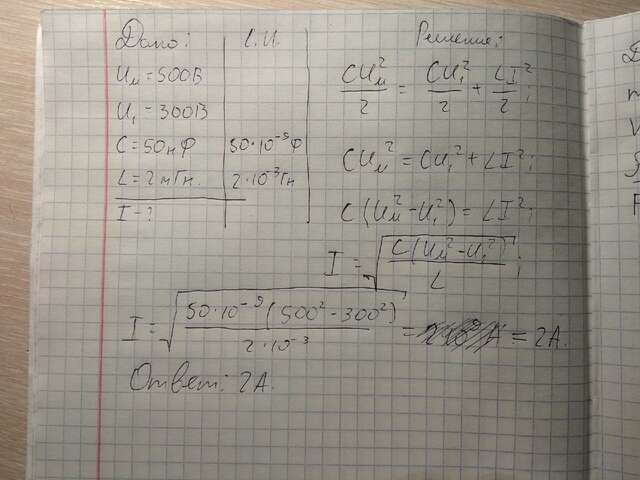 Дано:
С.И.
Uм = 500В
U₁ = 300В
C = 50нФ
50·10⁻⁹Ф
L = 2мГн.
2·10⁻³Гн
I - ?
Решение:
CUм²/2 = CU₁²/2 + LI²/2;
CUм² = CU₁² + LI²;
C(Uм² - U₁²) = LI²;
I = √(C(Uм² - U₁²)/L);
I = √(50·10⁻⁹(500² - 300²)/2·10⁻³) = = 2А.
Ответ: 2А.